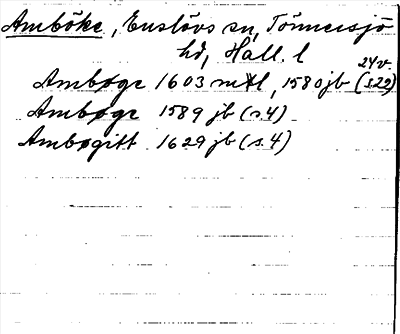 Amböke, Enslövs sn, Tönnersjö
hd, Hall. l
24v
Ambøge 1603 mtl, 1580 jb (s22)
Ambøge 1589 jb (s.4)
Ambøgitt 1629 jb (s.4)